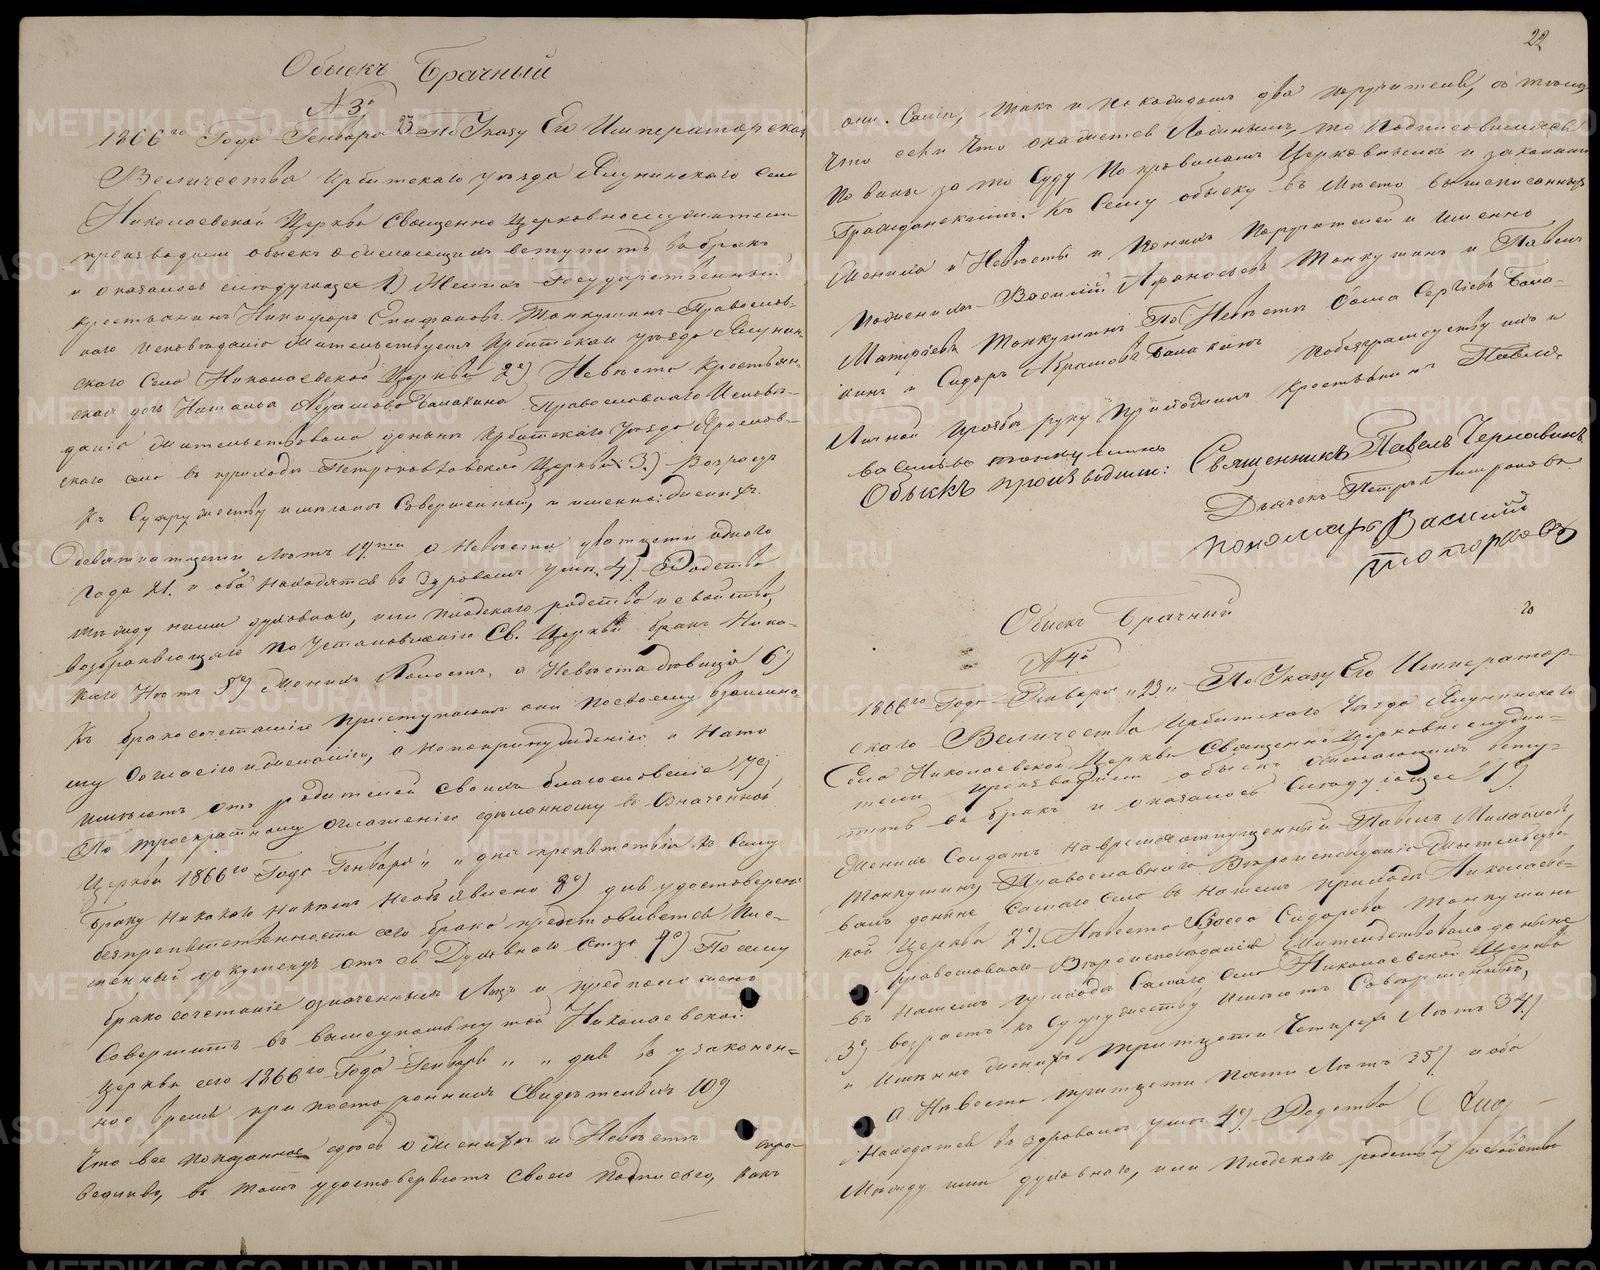 Обыскъ Брачный
№ 3й
1866го Года Генваря 23 дня По Указу Его Императорскаго
Величества Ирбитскаго уезда Ялунинскаго Села
Николаевской Церкви Священно Церковнослужители
производили обыскъ о желающихъ вступить въ бракъ
и оказалось следующее 1) Женихъ Государственный
крестьянинъ Никифоръ Епифановъ Тонкушинъ Православ-
наго исповедания жительствуетъ Ирбитскаго уезда Ялунин-
скаго Села Николаевской Церкви 2е) Невеста Крестьян-
ская дочь Наталья Абрамова Балакина Православнаго Исповѣ-
данія жительствовала доныне Ирбитскаго Уезда
скаго села въ приходѣ Петропавловской Церкви 3.) Возрастъ
Къ Супружеству имѣютъ Совершенный, и именно: Женихъ
Девятнатцети Лѣтъ 19ти а Невеста дватцети одного
года 21. и оба находятся въ здравомъ уме. 4) Родства
между ними духовнаго, или плодскаго родства и свойства,
возбраняющаго по установленію Св. Церкви бракъ Ника-
каго Нетъ 5е) Женихъ Холостъ, а Невеста девица 6е)
Къ бракосочетанію приступаютъ они по своему взаимно-
му согласію и желанію, а не по принужденію и На то
имеютъ отъ родителей своихъ благословеніе 7е)
По троекратному оглашенію сделанному въ означенной
Церкви 1866го Года Генваря „ „ дня препятствія къ Сему
браку никакого никемъ не объявлено 8е) для удостоверения
безпрепятственности сего брака представляется Пис-
менный документъ отъ Духовнаго Отца 9е) По сему
бракосочетаніе означенныхъ Лицъ и предположено
Совершить въ вышеупомянутой Николаевской
церкви сего 1866го Года Генваря „ „ дня въ узаконен-
ное время при постороннихъ Свидѣтеляхъ 10е)
Что все показанное здесь о женихе и Невесте спра-
ведливо, въ томъ удостоверяютъ своею подписью, какъ
22
они Сами, такъ и по каждомъ два поручителя, съ темъ
Что если Что окажется Ложнымъ, то Подписавшіеся
Повинны за то Суду По правиламъ Церковнымъ и законамъ
Гражданскимъ. Къ Сему обыску въ место вышеписанныхъ
Жениха и Невесты и Поручителей и именно
По женихе Василий Афанасьевъ Тонкушинъ и Павелъ
Тонкушинъ По Невесте Савва Сергеевъ Бала-
кинъ и Сидоръ Абрамовъ Балакинъ по безграмотству ихъ и
Личной прозьбе руку приложилъ крестьянинъ Павелъ
Васильевъ Тонкушинъ
Обыскъ производили: Священникъ Павелъ Чернавинъ
Дьячекъ Петръ
Пономарь Василий
Топорковъ
Обыскъ Брачный
№ 4й
1866го Года Генваря „23„ По Указу Его Император-
скаго Величества Ирбитскаго Уезда Ялунинскаго
Села Николаевской Церкви Священно Церковнослужи-
тели производили обыскъ о желающихъ всту-
пить въ бракъ и оказалось следующее 1е)
Женихъ Солдатъ на время отпущенный Павелъ Михайловъ
Тонкушинъ, Православнаго Вероисповеданія Жительство-
валъ доныне Самаго Села въ нашемъ приходе Николаевс-
кой Церкви 2е) Невеста Васса Сидорова Тонкушина
Православнаго Вероисповеданія Жительствовала доныне
въ нашемъ приходе Самаго Села Николаевской Церкви
3е) возрастъ къ Супружеству имеютъ Совершенный,
и именно женихъ тритцети Четырехъ Летъ 34)
а Невеста тритцети пяти Летъ 35) и оба
Находятся въ здравомъ уме 4е) Родства
Между ими духовнаго, или плодскаго родства и свойства